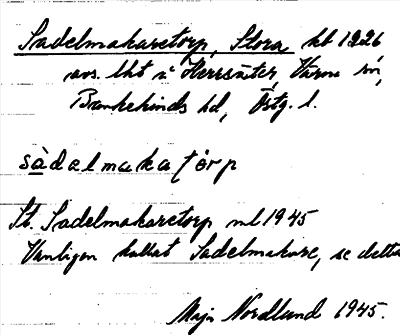 Sadelmakaretorp, Stora hb 1226
avs. lht i Herrsäter, Värna sn,
Bankekinds hd, Östg. l.
sàdalmakatórp
St. Sadelmakaretorp ml 1945
Vanligen kallat Sadelmakare, se detta
Maj Nordlund 1945.